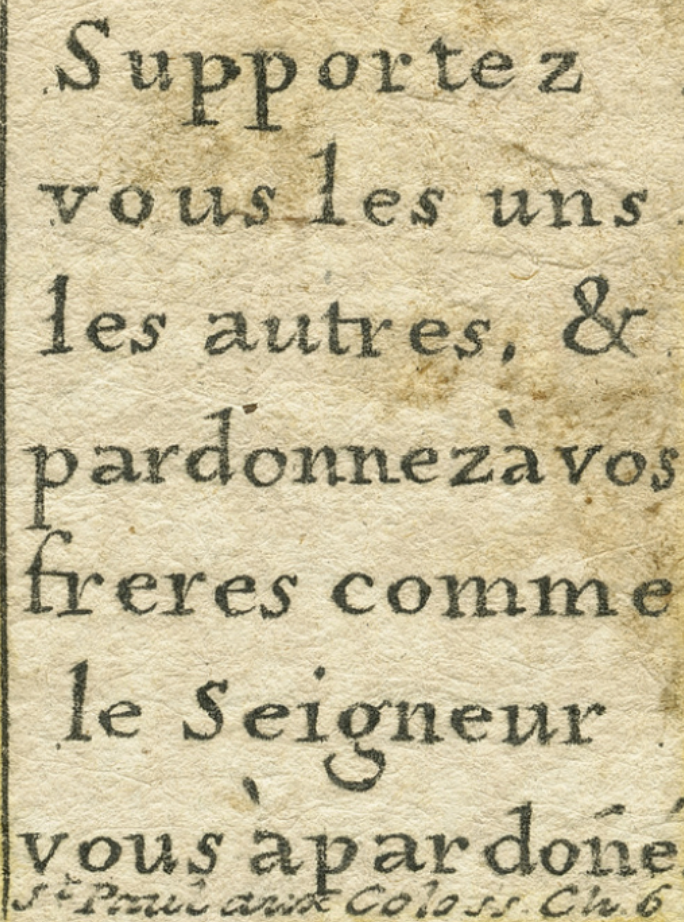 Supportez
vous les uns
les autres, &
pardonnez à vos
freres comme
le Seigneur
vous à pardoñé
St. Paul aux Coloss. Ch 6